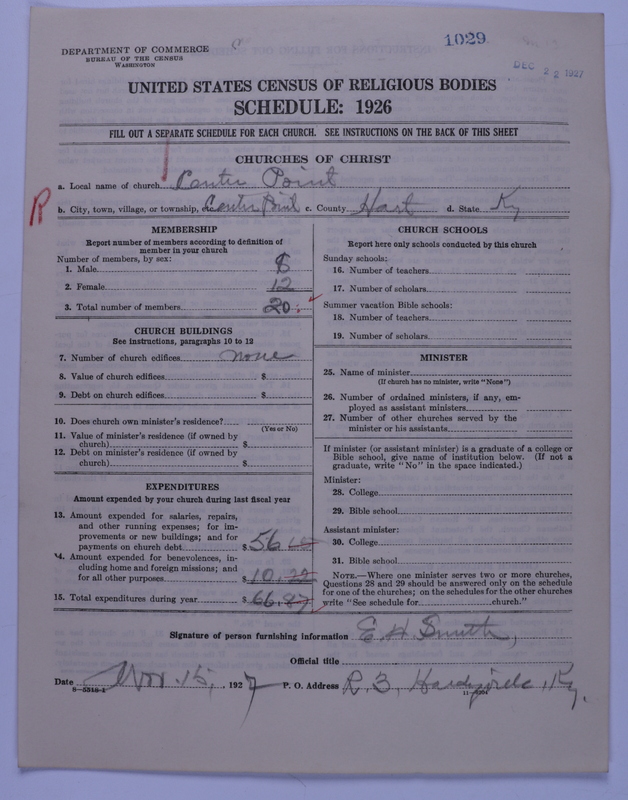 DEPARTMENT OF COMMERCE
BUREAU OF THE CENSUS
WASHINGTON
1029
DEC 22 1927
UNITED STATES CENSUS OF RELIGIOUS BODIES
SCHEDULE: 1926
FILL OUT A SEPARATE SCHEDULE FOR EACH CHURCH. SEE INSTRUCTIONS ON THE BACK OF THIS SHEET
CHURCHES OF CHRIST
a. Local name of church Center Point
R
b. City, town, village, or township, etc Center Point c. County Hart d. State Ky
MEMBERSHIP
Report number of members according to definition of
member in your church
Number of members, by sex:
1. Male 8
2. Female 12
3. Total number of members 20
CHURCH BUILDINGS
See instructions, paragraphs 10 to 12
7. Number of church edifices none
8. Value of church edifices $
9. Debt on church edifices $
10. Does church own minister's residence?
(Yes or No)
11. Value of minister's residence (if owned by
church) $
12. Debt on minister's residence (if owned by
church) $
EXPENDITURES
Amount expended by your church during last fiscal year
13. Amount expended for salaries, repairs,
and other running expenses; for im-
provements or new buildings; and for
payments on church debt $ 56
14. Amount expended for benevolences, in-
cluding home and foreign missions; and
for all other purposes $ 10.22
15. Total expenditures during year $ 66.87
CHURCH SCHOOLS
Report here only schools conducted by this church
Sunday schools:
16. Number of teachers
17. Number of scholars
Summer vacation Bible schools:
18. Number of teachers
19. Number of scholars
MINISTER
25. Name of minister
(If church has no minister, write "None")
26. Number of ordained ministers, if any, em-
ployed as assistant ministers
27. Number of other churches served by the
minister or his assistants
If minister (or assistant minister) is a graduate of a college or
Bible school, give name of institution below. (If not a
graduate, write "No" in the space indicated.)
Minister:
28. College
29. Bible school
Assistant minister:
30. College
31. Bible school
NOTE.—Where one minister serves two or more churches,
Questions 28 and 29 should be answered only on the schedule
for one of the churches; on the schedules for the other churches
write "See schedule for church."
Signature of person furnishing information E. H. Smith,
Official title
Date Nov 15, , 1927 P. O. Address R. 3, Hardyville, Ky.
8—5518-1